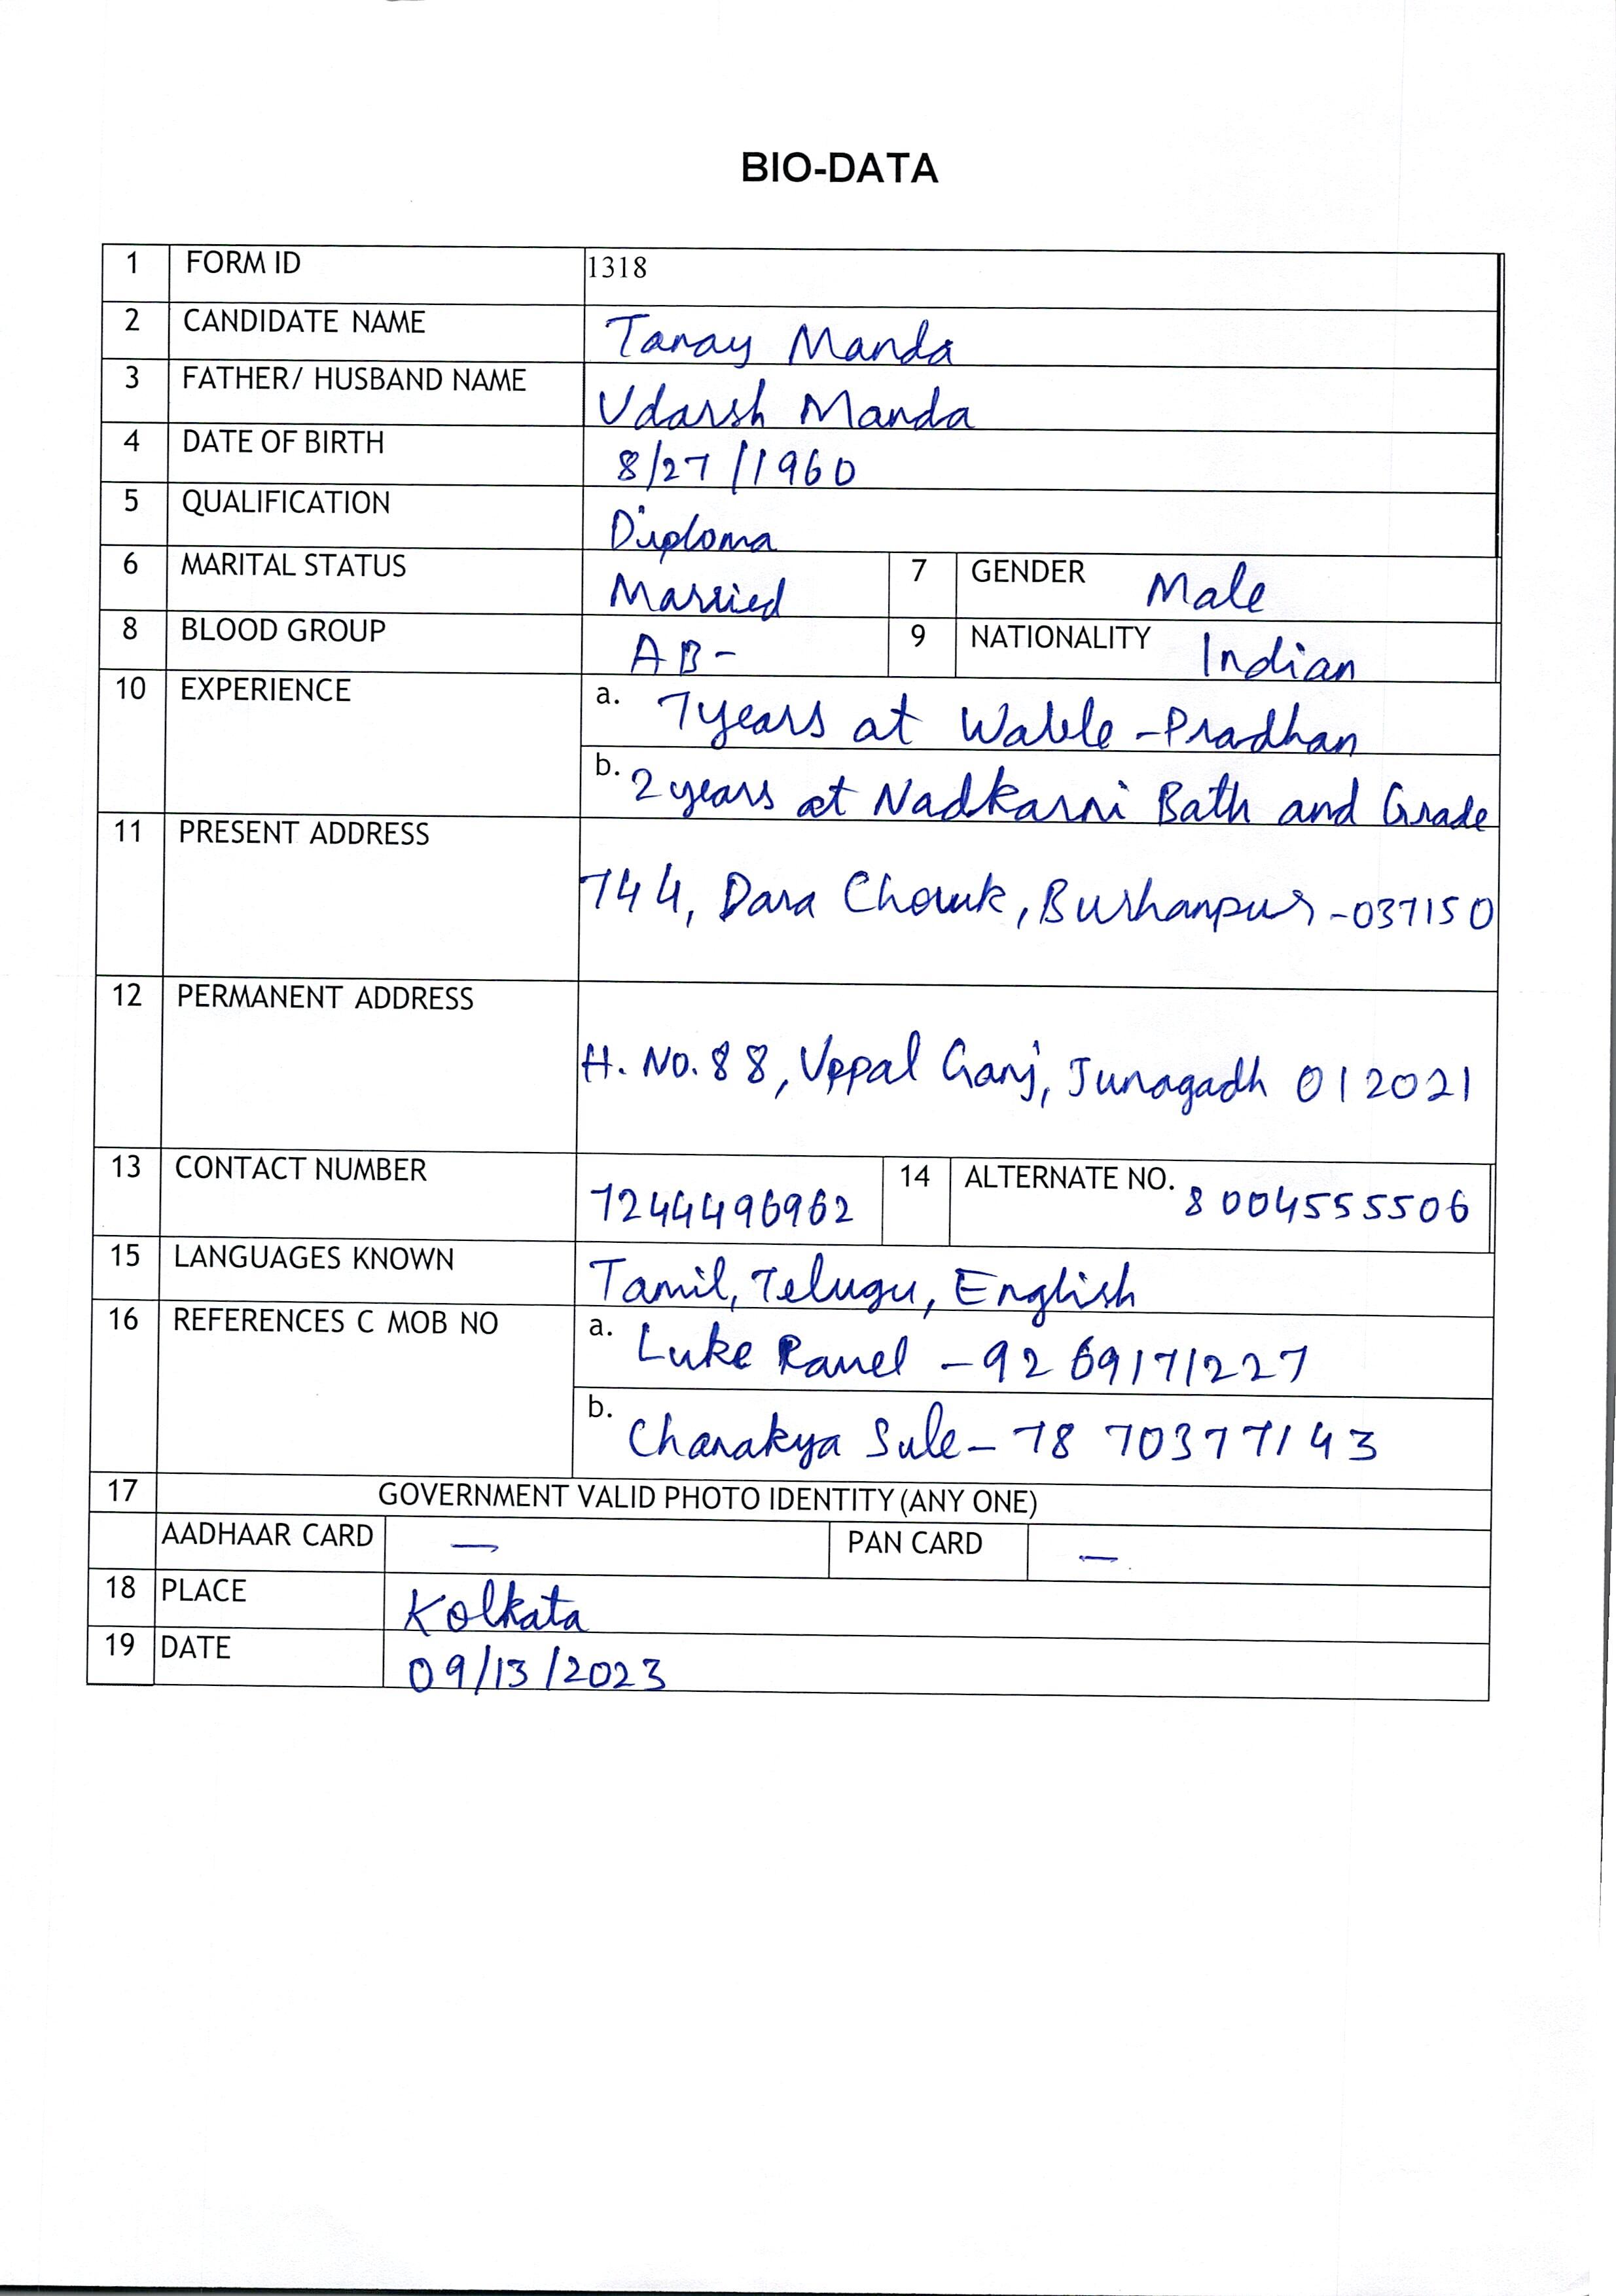 BIO-DATA
1 FORM ID 1318
2 CANDIDATE NAME Tanay Manda
3 FATHER/ HUSBAND NAME Udarsh Manda
4 DATE OF BIRTH 8/27/1960
5 QUALIFICATION Diploma
6 MARITAL STATUS Married 7 GENDER Male
8 BLOOD GROUP AB- 9 NATIONALITY Indian
10 EXPERIENCE a. 7 years at Wable-Pradhan
b. 2 years at Nadkarni Bath and Grade
11 PRESENT ADDRESS 744, Dara Chowk, Burhanpur-037150
12 PERMANENT ADDRESS H. No. 88, Uppal Ganj, Junagadh 012021
13 CONTACT NUMBER 7244496962 14 ALTERNATE NO. 8004555506
15 LANGUAGES KNOWN Tamil, Telugu, English
16 REFERENCES C MOB NO a. Luke - 9269171227
b. Chanakya Sule - 7870377143
17 GOVERNMENT VALID PHOTO IDENTITY (ANY ONE)
AADHAAR CARD — PAN CARD —
18 PLACE Kolkata
19 DATE 09/13/2023